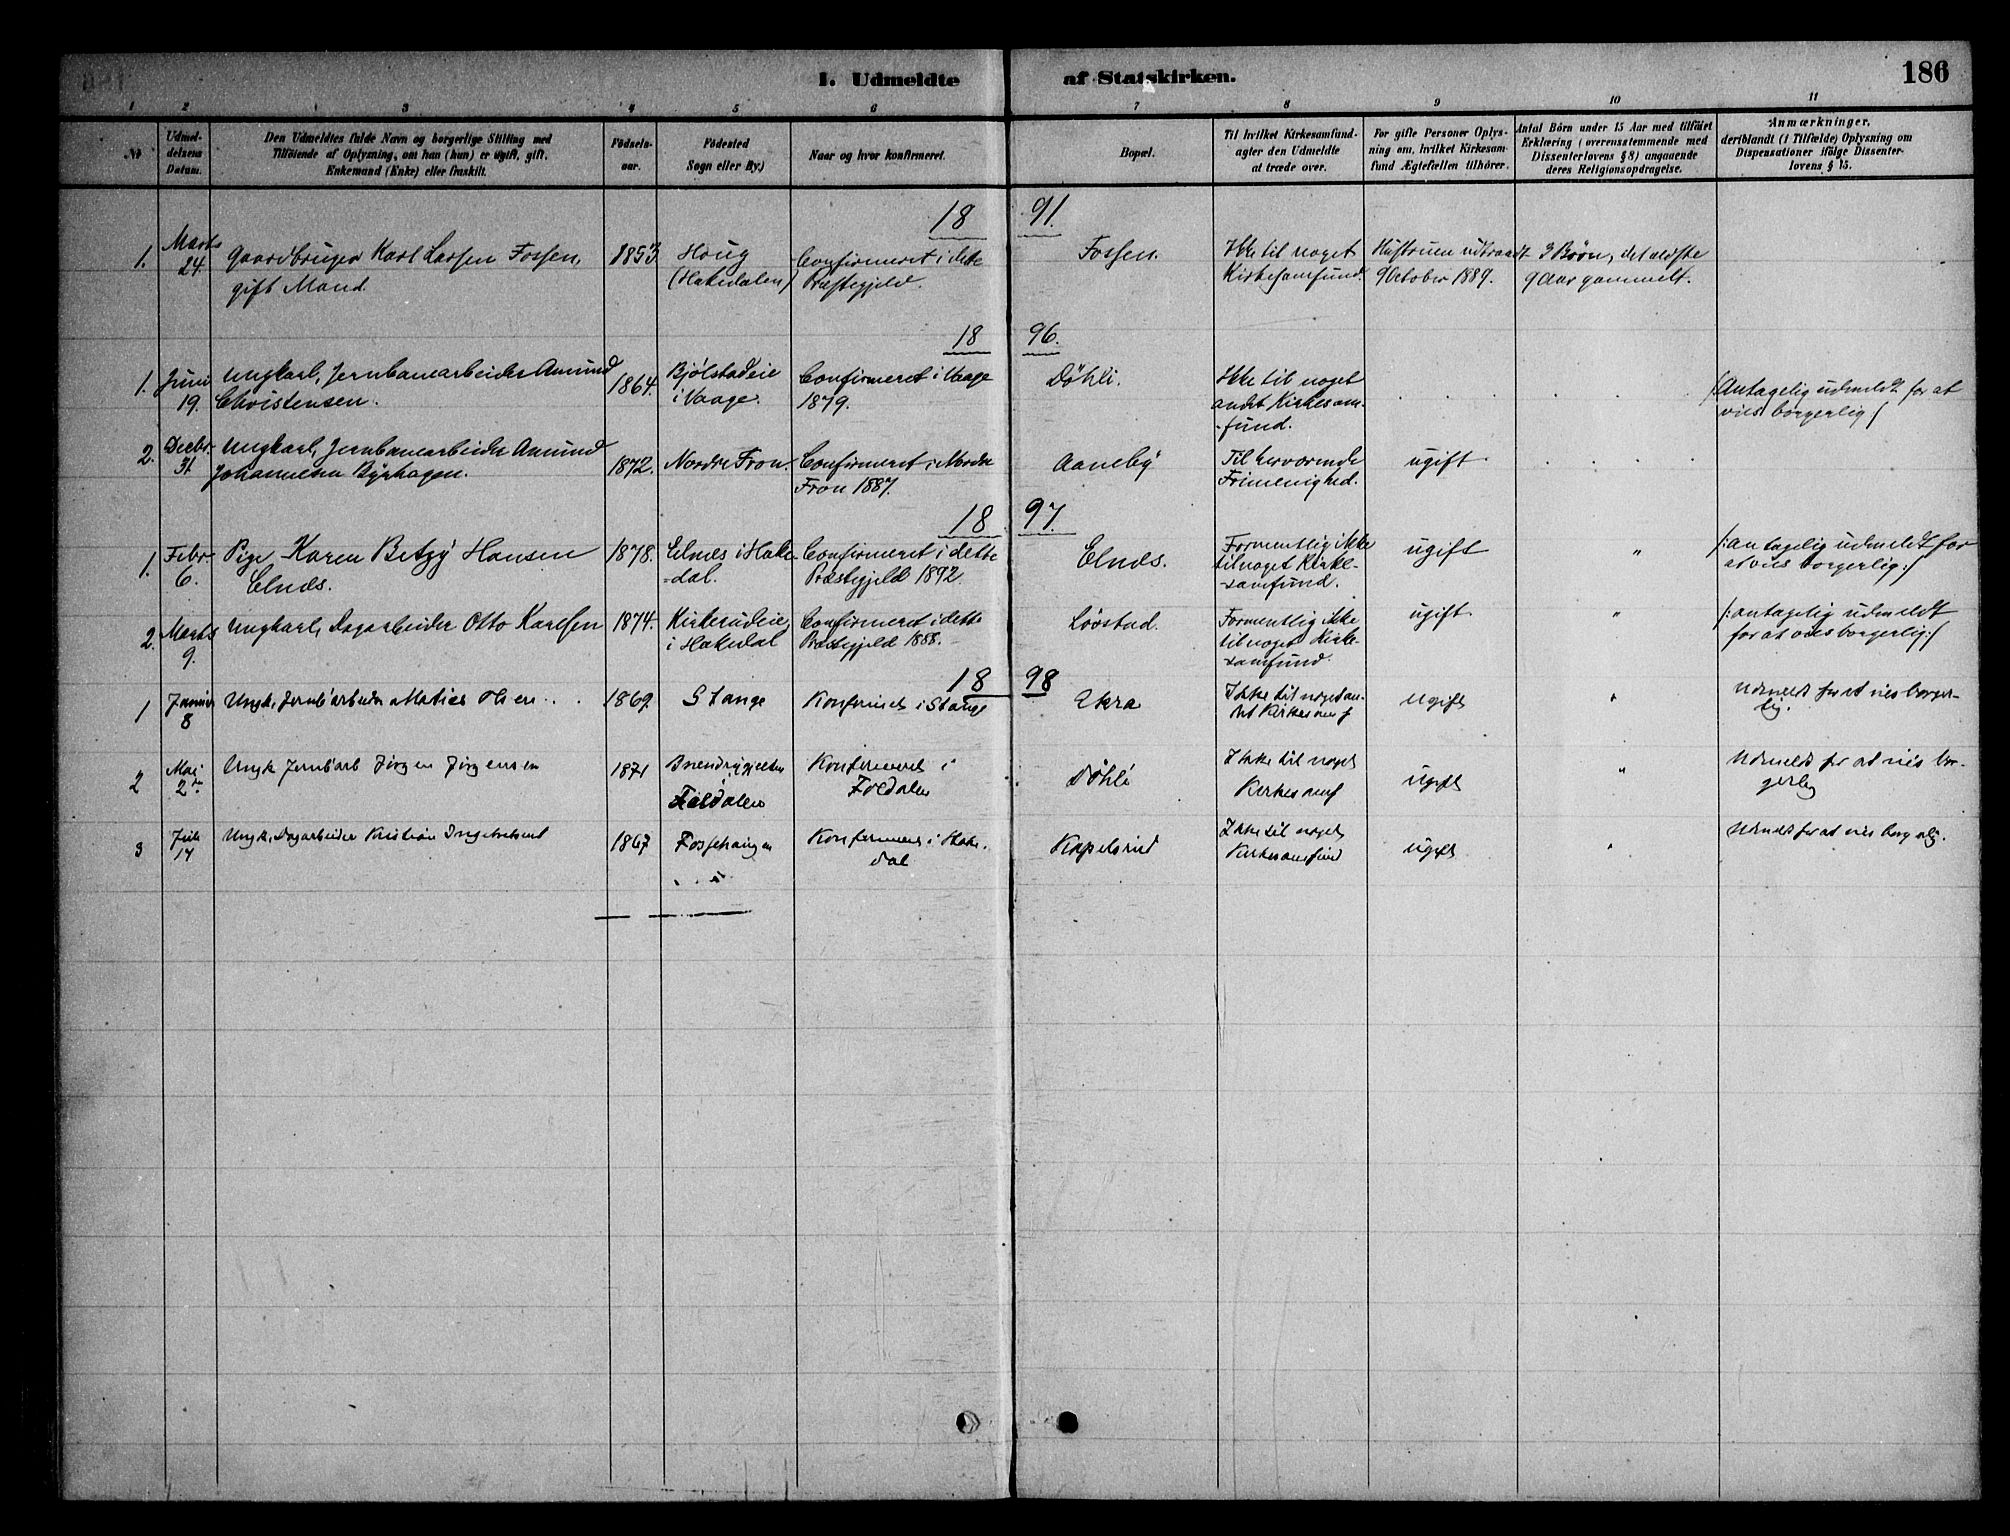 I. Udmeldte af Statskirken. 186
1 2 3 4 5 6 7 8 9 10 11
No
Udmel-
delsens
Datum.
Den Udmeldtes fulde Navn og borgerlige Stilling med
Tilföiende af Oplysning, om han (hun) er ugift, gift,
Enkemand (Enke) eller fraskilt.
Födsels-
aar.
Födested
Sogn eller By.)
Naar og hvor konfirmeret.
Bopæl.
Til hvilket Kirkesamfund-
agter den Udmeldte
at træde over.
For gifte Personer Oplys-
ning om, hvilket Kirkesam-
fund Ægtefællen tilhörer.
Antal Börn under 15 Aar med tilföiet
Erklæring (overensstemmende med
Dissenterlovens § 8) angaaende
deres Religionsopdragelse.
Anmærkninger,
deriblandt (i Tilfælde) Oplysning om
Dispensationer ifölge Dissenter-
lovens § 15.
18 91.
1.
Marts
24.
Gaardbruger Karl Larsen Fossen,
gift Mand.
1853
Houg
(Hakedalen)
Confirmeret i dette
Præstegjeld.
Fossen.
Ikke til noget
Kirkesamfund.
Hustruen udtraadt
9 October 1889.
3 Börn, det ældste
9 Aar gammelt.
18 96.
1.
Juni
19.
Ungkarl, Jernbanearbeider Amund
Christensen.
1864.
Bjölstadeie
i Vaage.
Confirmeret i Vaage
1879.
Döhli.
Ikke til noget
andet Kirkesam-
-fund.
/Antagelig udmeldt for at
vies borgerlig/
2.
Decbr.
31.
Ungkarl, Jernbanearbeider Amund
Johannesen Byrhagen.
1872.
Nordre Fron.
Confirmeret i Nordre
Fron 1887.
Aaneby
Til herværende
Frimenighed.
ugift.
18 97.
1.
Febr.
6.
Pige Karen Betzy Hansen
Elnæs.
1878.
Elnæs i Hake-
-dal.
Confirmeret i dette
Præstegjeld 1892.
Elnæs.
Formentlig ikke
til noget Kirke-
-samfund.
ugift
"
/:antagelig udmeldt for
at vies borgerlig:/
2.
Marts
9.
Ungkarl, Dagarbeider Otto Karlsen
1874.
Kirkerudeie,
i Hakedal
Confirmeret i dette
Præstegjeld 1888.
Lövstad.
Formentlig ikke
til noget Kirke-
-samfund.
ugift.
"
/:antagelig udmeldt
for at vies borgerlig:/
18 98
1
Januar
8
Ungk. Jernb'arbeider Matias Olsen
1869
Stange
Konfirmeret i Stange
Ekra
Ikke til noget an-
det Kirkesamf
ugift
"
Udmeldt for at vies borger-
lig.
2
Mai
2
Ungk Jernb'arb Jörgen Jörgensen
1871
Foldalen
Konfirmeret i
Foldalen
Döhli
Ikke til noget
Kirkesamf
ugift
"
Udmeldt for at vies bor-
gerlig
3
Juli
14
Ungk. Dagarbeider Kristian Ingebretsen
1867
Fossehaugen
Konfirmeret i Hake-
dal
Kapelsrud
Ikke til noget
Kirkesamfund
ugift
"
Udmeldt for at vies borgerlig.